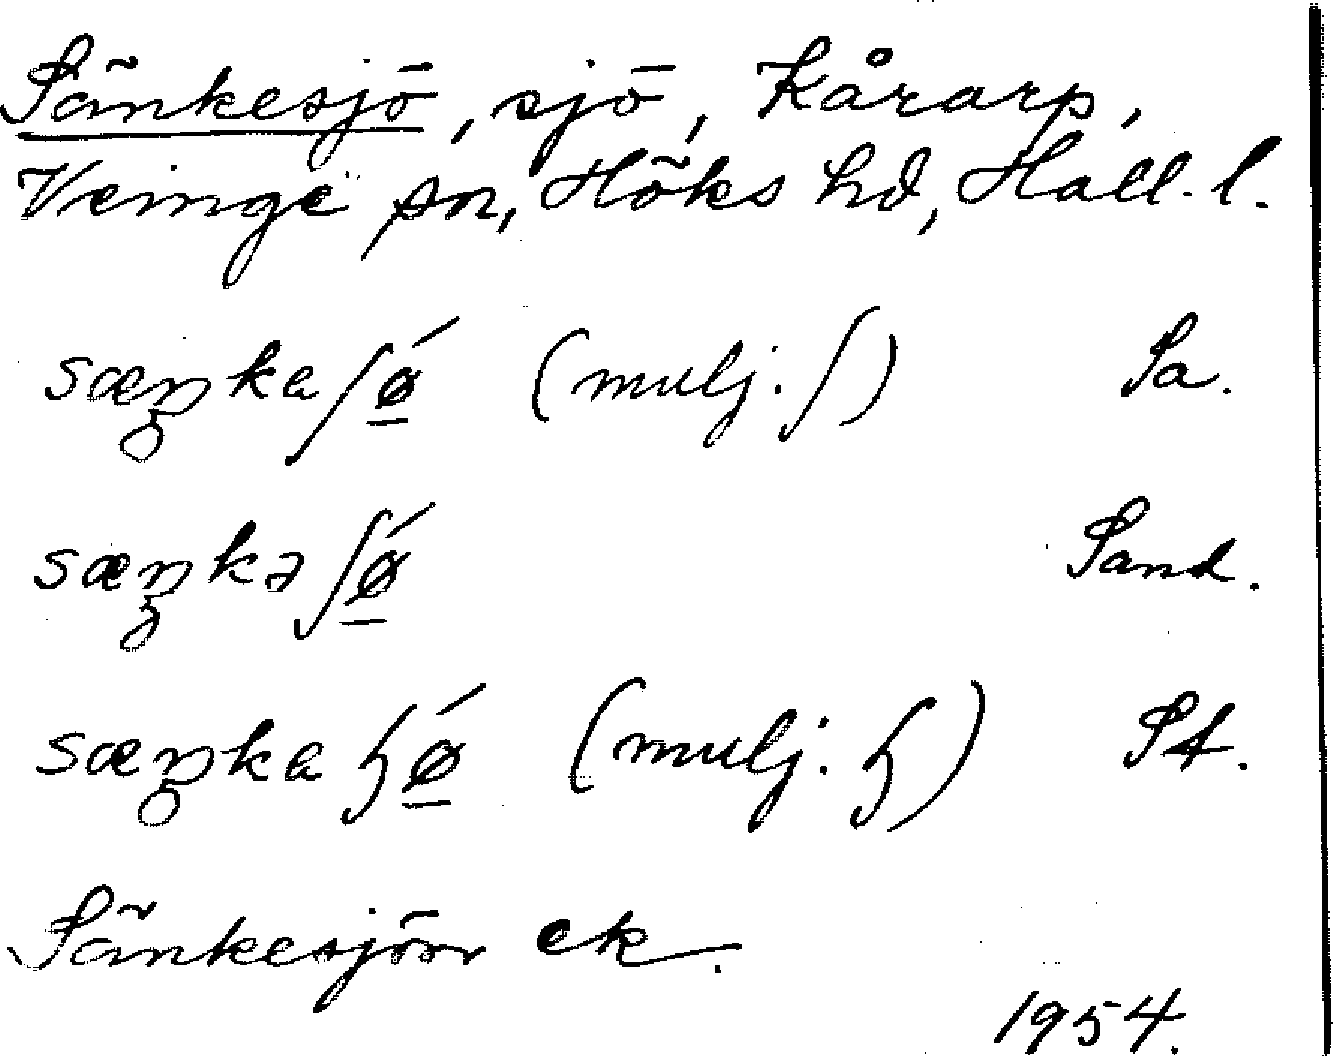 Sänkesjö, sjö, Kårarp,
Veinge sn, Höks hd, Hall. l.
sæŋkaʃǿ̱ (mulj. ʃ) Sa.
sæŋkəʃǿ̱ Sand.
sæŋkaɧǿ̱ (mulj. ɧ) St.
Sänkesjön ek.
1954.